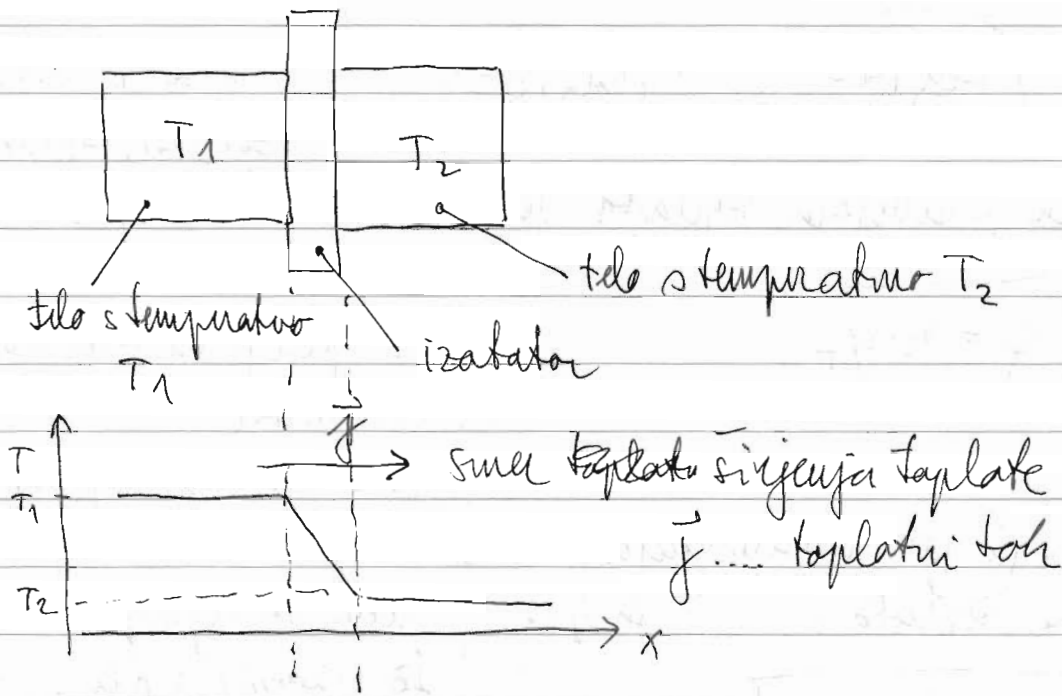 T₁
T₂
telo s temperaturo T₂
telo s temperaturo
T₁
izolator
j⃗
T
smer širjenja toplote
T₁
j⃗.... toplotni tok
T₂
x